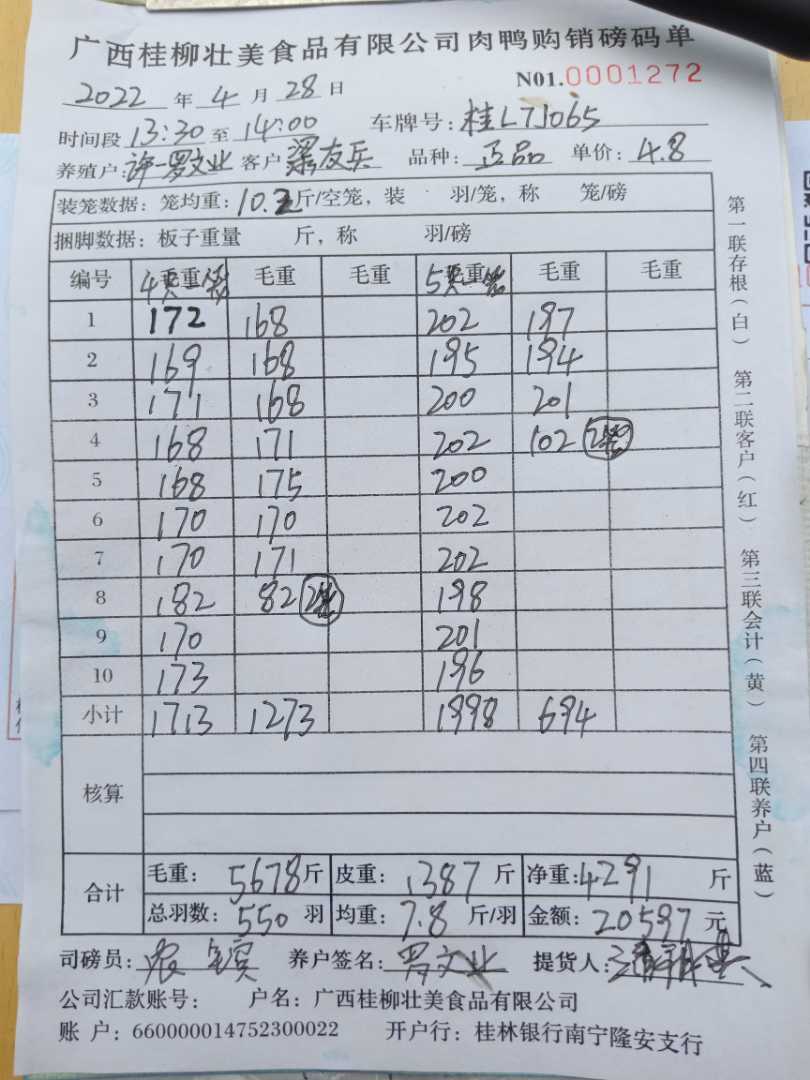 广西桂柳壮美食品有限公司肉鸭购销磅码单
2022 年 4 月 28 日 N01.0001272
时间段 13:30 至 14:00 车牌号: 桂L7J065
养殖户: 许一罗文业 客户 梁友兵 品种: 正品 单价: 4.8
装笼数据: 笼均重: 10.2 斤/空笼, 装 羽/笼, 称 笼/磅
捆脚数据: 板子重量 斤, 称 羽/磅
编号 4 毛重 毛重 毛重 5 毛重 毛重 毛重
1 172 168 202 197
2 169 168 195 194
3 171 168 200 201
4 168 171 202 102 2笼
5 168 175 200
6 170 170 202
7 170 171 202
8 182 82 2笼 198
9 170 201
10 173 196
小计 1713 1273 1998 694
核算
合计 毛重: 5678 斤 皮重: 1387 斤 净重: 4291 斤
总羽数: 550 羽 均重: 7.8 斤/羽 金额: 20597 元
司磅员: 农 宾 养户签名: 罗文业 提货人:
公司汇款账号: 户名: 广西桂柳壮美食品有限公司
账 户: 660000014752300022 开户行: 桂林银行南宁隆安支行
第一联存根(白) 第二联客户(红) 第三联会计(黄) 第四联养户(蓝)